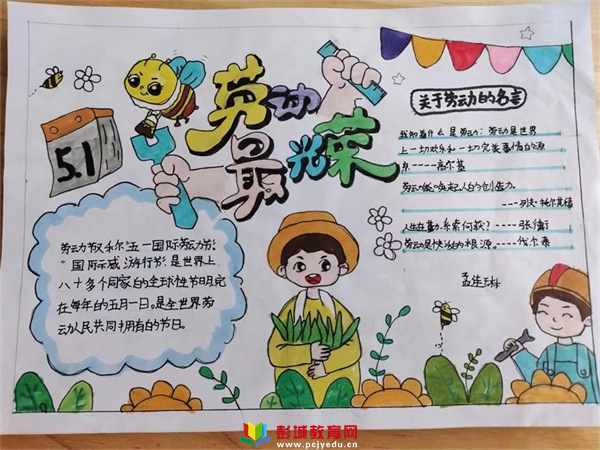 劳动最光荣
5.1
劳动节又称"五一国际劳动节"
"国际示威游行节"是世界上
八十多个国家的全球性节日。定
在每年的五月一日。是全世界劳
动人民共同拥有的节日。
关于劳动的名言
我知道什么是劳动:劳动是世界
上一切欢乐和一切完美事情的源
泉----高尔基
劳动能唤起人的创造力。
----列夫·托尔斯泰
人生在勤,不索何获?----张衡
劳动是快活的根源。----伏尔泰
彭城教育网
www.pcjyedu.cn